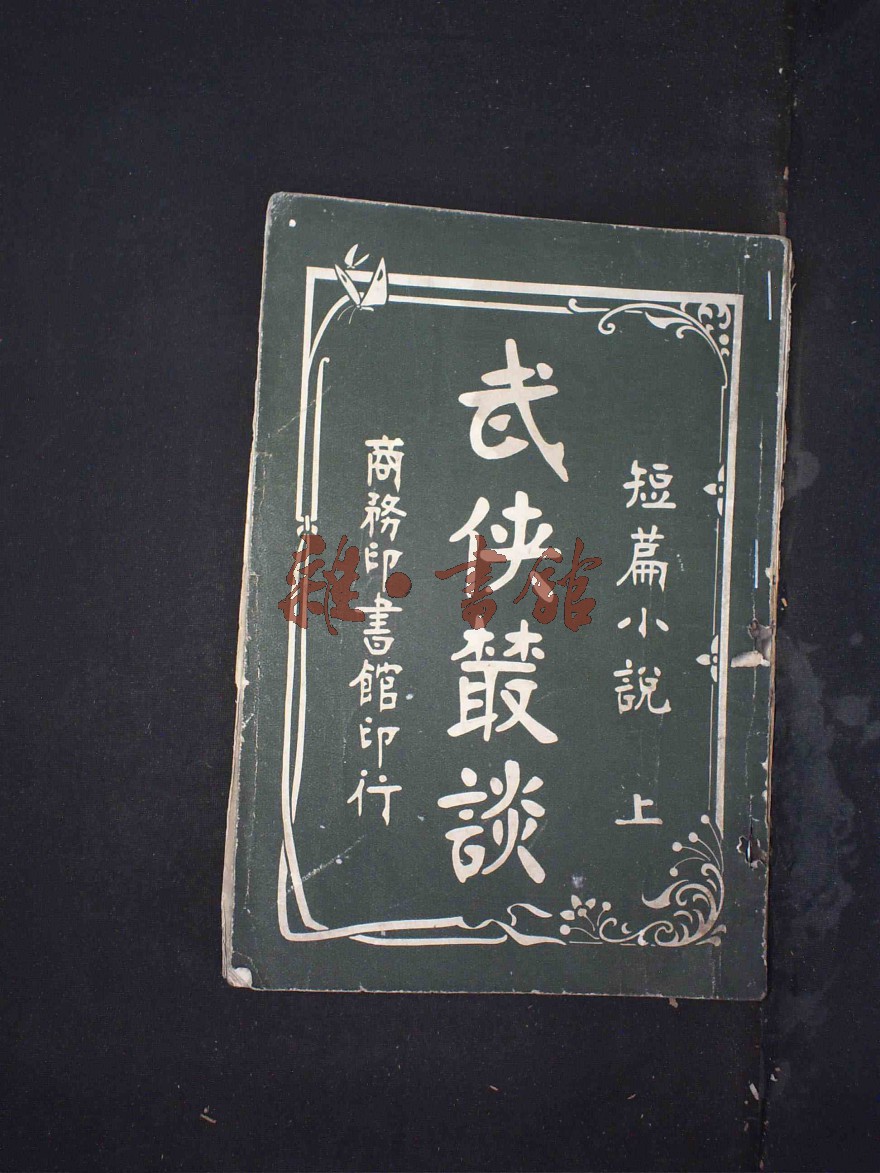 短篇小說 上
武俠叢談
商務印書館印行
雜·書館